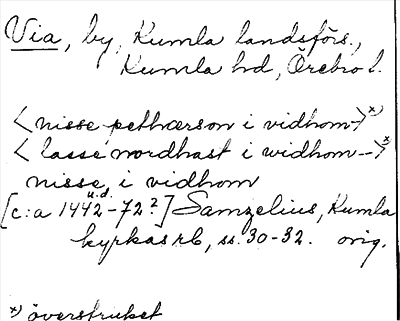 Via, by, Kumla landsförs.,
Kumla hd, Örebro l.
<nisse pethærson i vidhom>x)
<lasse nordhast i widhom ->x
nisse, i vidhom
[c:a 1442 u.d. -72?] Samzelius, Kumla
kyrkas rb, ss. 30-32. orig.
x) överstruket